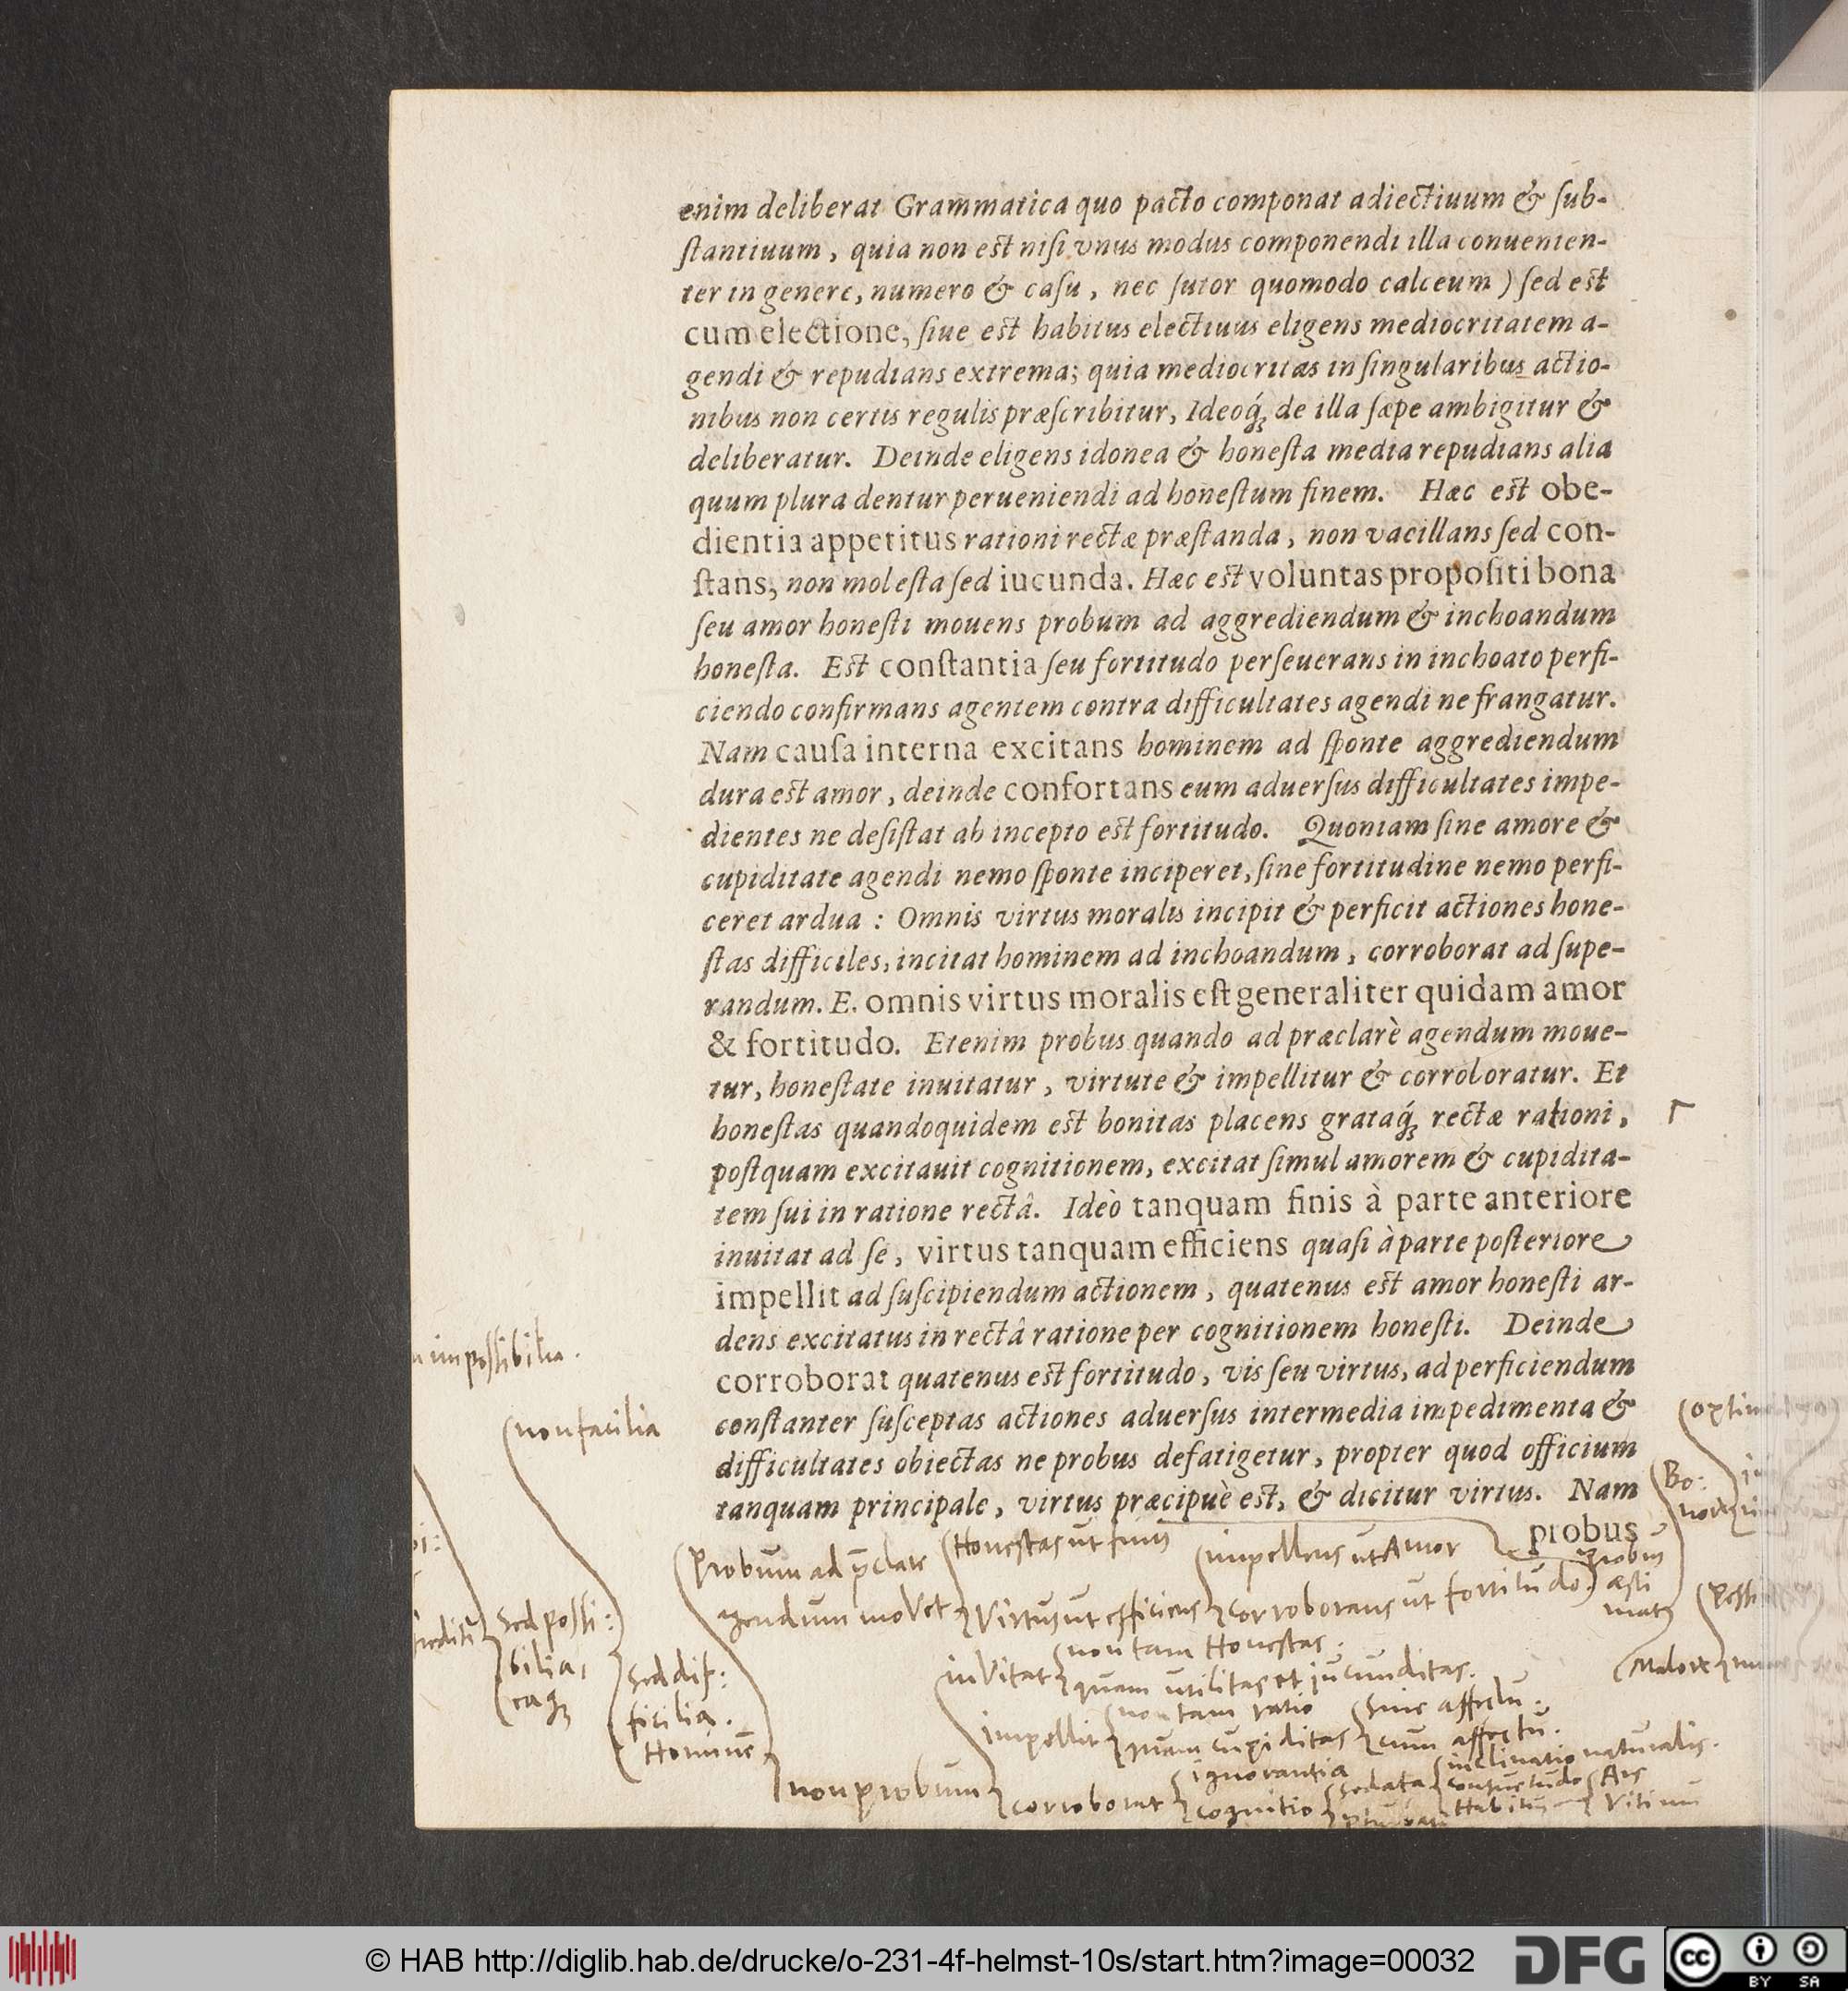 enim deliberat Grammatica quo pacto componat adiectiuum & ſub-
ſtantiuum, quia non est niſi vnus modus componendi illa conuenien-
ter in genere, numero & caſu, nec ſutor quomodo calceum) ſed est
cum electione, ſiue est habitus electiuus eligens mediocritatem a-
gendi & repudians extrema; quia mediocritas in ſingularibus actio-
nibus non certis regulis præſcribitur, Ideoq́ꝫ de illa ſæpe ambigitur &
deliberatur. Deinde eligens idonea & honeſta media repudians alia
quum plura dentur perueniendi ad honeſtum finem. Hæc est obe-
dientia appetitus rationi rectæ præſtanda, non vacillans ſed con-
ſtans, non moleſta ſed iucunda. Hæc est voluntas propoſiti bona
ſeu amor honeſti mouens probum ad aggrediendum & inchoandum
honeſta. Est conſtantia ſeu fortitudo perſeuerans in inchoato perfi-
ciendo confirmans agentem contra difficultates agendi ne frangatur.
Nam cauſa interna excitans hominem ad ſponte aggrediendum
dura est amor, deinde confortans eum aduerſus difficultates impe-
dientes ne deſiſtat ab incepto est fortitudo. Quoniam ſine amore &
cupiditate agendi nemo ſponte inciperet, ſine fortitudine nemo perfi-
ceret ardua : Omnis virtus moralis incipit & perficit actiones hone-
ſtas difficiles, incitat hominem ad inchoandum, corroborat ad ſupe-
randum. E. omnis virtus moralis eſt generaliter quidam amor
& fortitudo. Etenim probus quando ad præclarè agendum moue-
tur, honeſtate inuitatur, virtute & impellitur & corroboratur. Et
honeſtas quandoquidem est bonitas placens grataq́ꝫ rectæ rationi,
poſtquam excitauit cognitionem, excitat ſimul amorem & cupidita-
tem ſui in ratione rectâ. Ideò tanquam finis à parte anteriore
inuitat ad ſe, virtus tanquam efficiens quaſi à parte poſteriore
impellit ad ſuſcipiendum actionem, quatenus est amor honeſti ar-
dens excitatus in rectâ ratione per cognitionem honeſti. Deinde
corroborat quatenus est fortitudo, vis ſeu virtus, ad perficiendum
conſtanter ſuſceptas actiones aduerſus intermedia impedimenta &
difficultates obiectas ne probus defatigetur, propter quod officium
tanquam principale, virtus præcipuè est, & dicitur virtus. Nam
probus
impossibilia.
non facilia
sed possi:
bilia,
eaqꝫ
sed dif:
ficilia.
Hominē
Probum ad p̄clare
agendum movet
Honestas ut finis
Virtus ut efficiens
impellens ut Amor
corroborans ut fortitudo.
probus
æsti
mat
Bo:
nore
Malore
non probum
invitat
non tam Honestas.
quam utilitas et jucunditas.
impellit
non tam ratio
quam cupiditas
sine affectu.
cum affectu.
corroborat
ignorantia
cognitio
sedata
inclinatio naturalis.
consuetudo
Habitus
Ars
Vitium
© HAB http://diglib.hab.de/drucke/o-231-4f-helmst-10s/start.htm?image=00032
DFG
cc
BY SA